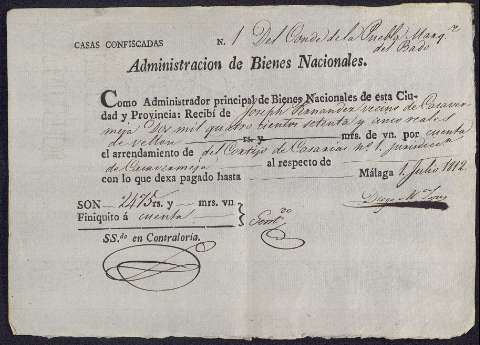 CASAS CONFISCADAS N. 1 Del Conde de la Puebla Marq.s
del Bado
Administracion de Bienes Nacionales.
Como Administrador principal de Bienes Nacionales de esta Ciu-
dad y Provincia: Recibí de Joseph Fernandez vecino de Casaver
meja Dos mil quatro cientos setenta y cinco reales
de vellon rs. y mrs. de vn. por cuenta
el arrendamiento de del Cortijo de Casarias nº 1. Jurisdicion
de Casavermeja al respecto de
con lo que dexa pagado hasta Málaga 1. Julio 1812.
SON 2475 rs. y mrs. vn.
Finiquito á cuenta
Diego M.
SS.do en Contraloría.